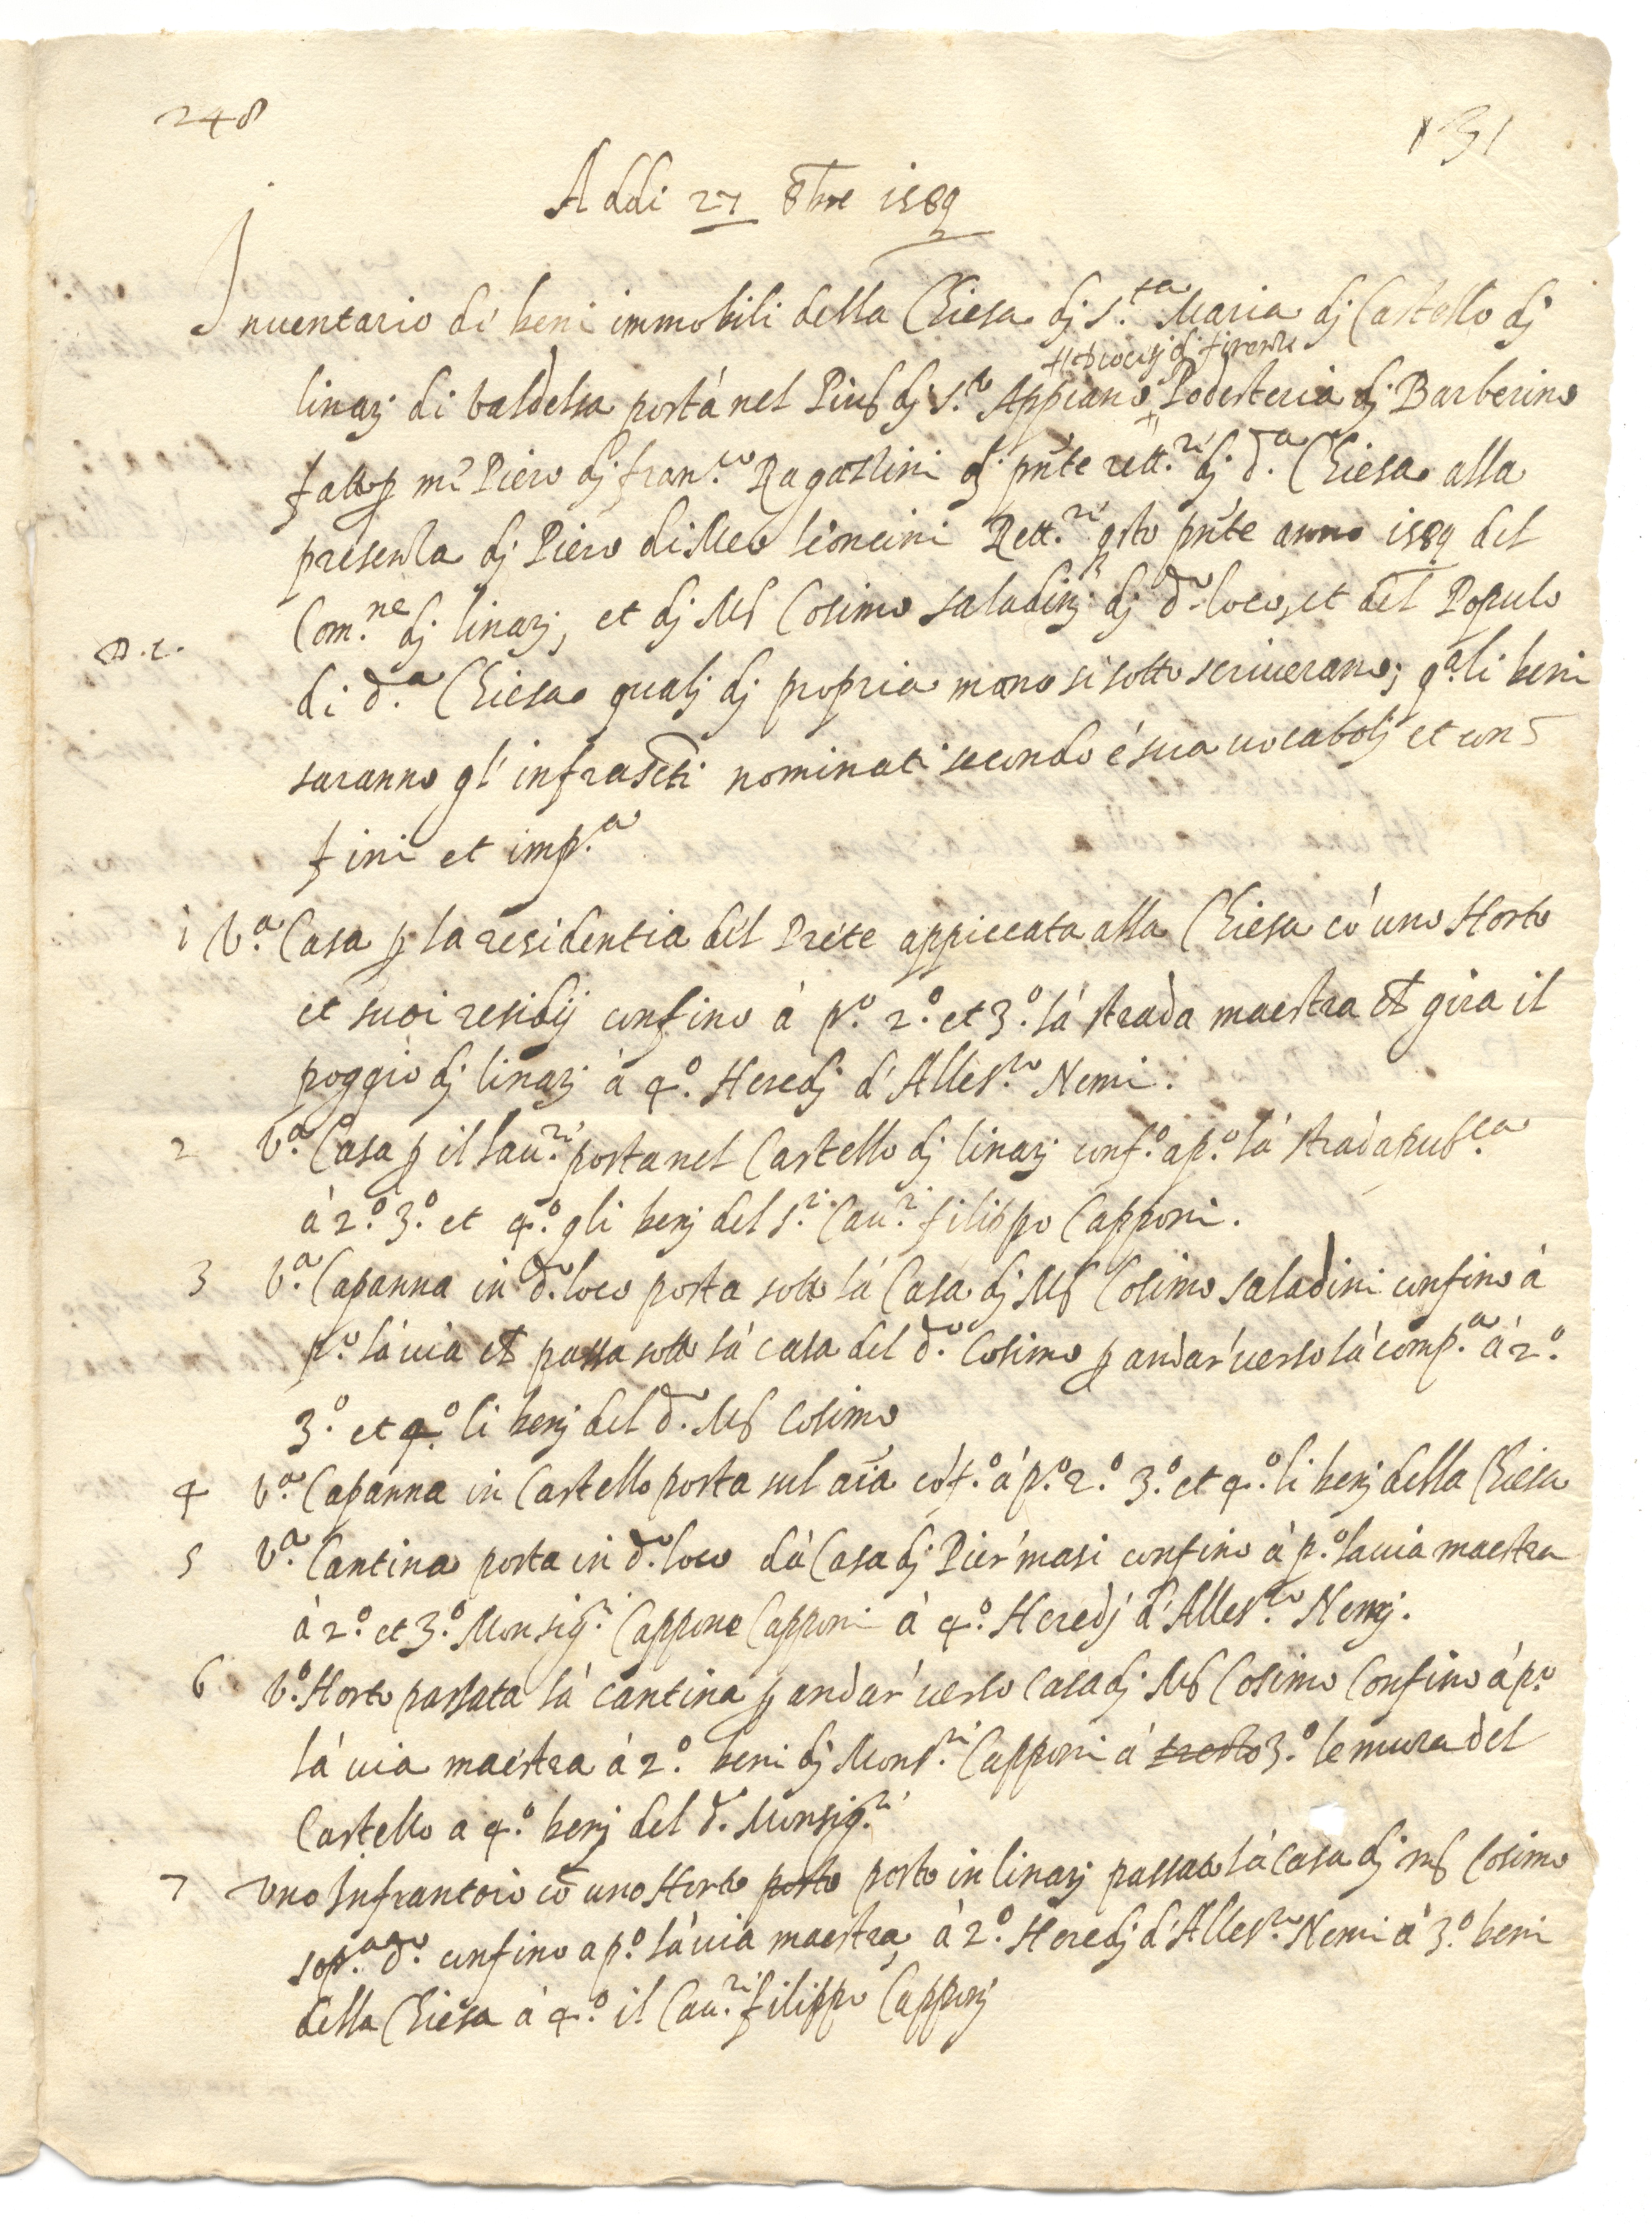 248
131
Addi 27 8bre 1589
Inuentario di beni immobili della Chiesa dj S.ta Maria dj Castello dj
diocesj dj firenze
linarj di valdelsa posta nel Piuo dj S.to Appiano Podesteria dj Barberino
fatto p m.o Piero dj fran.co Ragazzini dj pnte rett.re dj d.a Chiesa alla
presenza dj Piero di Meo leoncini Rett.re qsto pnte anno 1589 del
Com.ne dj linarj, et dj Ms Cosimo saladinj dj d.o loco, et del Populo
di d.a Chiesa qualj dj propria mano si sotto scriuerano; q.ali beni
saranno gl' infrascti nominati secondo è sua uocabolj et con
fini et imp.a
1 V.a Casa p la residentia del Prete appiccata alla Chiesa cō uno Horto
et suoi residij confino à p.o 2.o et 3.o la strada maestra ch gira il
poggio dj linarj à 4.o Heredj d'Alless.ro Nemi.
2 V.a Casa p il lau.re posta nel Castello dj linarj conf.o a p.o la strada pub.ca
à 2.o 3.o et 4.o gli benj del S.r Cau.r filippo Capponi.
3 V.a Capanna in d.o loco posta sotto la Casa dj Ms Cosimo saladini confino à
p.o la uia ch passa sotto la casa del d.o Cosimo p andar uerso la comp.a à 2.o
3.o et 4.o li benj del d.o Ms Cosimo
4 V.a Capanna in Castello posta sul aia cōf.o à p.o 2.o 3.o et 4.o li benj della Chiesa
5 V.a Cantina posta in d.o loco da Casa dj Pier masi confino à p.o la uia maestra
à 2.o et 3.o Monsig.r Cappone Capponi à 4.o Heredj d'Alless.ro Nemj.
6 V.o Horto passata la cantina p andar uerso casa dj Ms Cosimo Confino à p.o
la uia maestra à 2.o beni dj Mons.r Capponi à 3.o le mura del
Castello a 4.o benj del d.o Monsig.r
7 Vno Infrantoio cō uno Horto posto posto in linarj passata la casa dj ms Cosimo
sop.a d.o confino a p.o la uia maestra, à 2.o Heredj d'Alless.ro Nemi à 3.o beni
della Chiesa à 4.o il Cau.r filippo Capponj